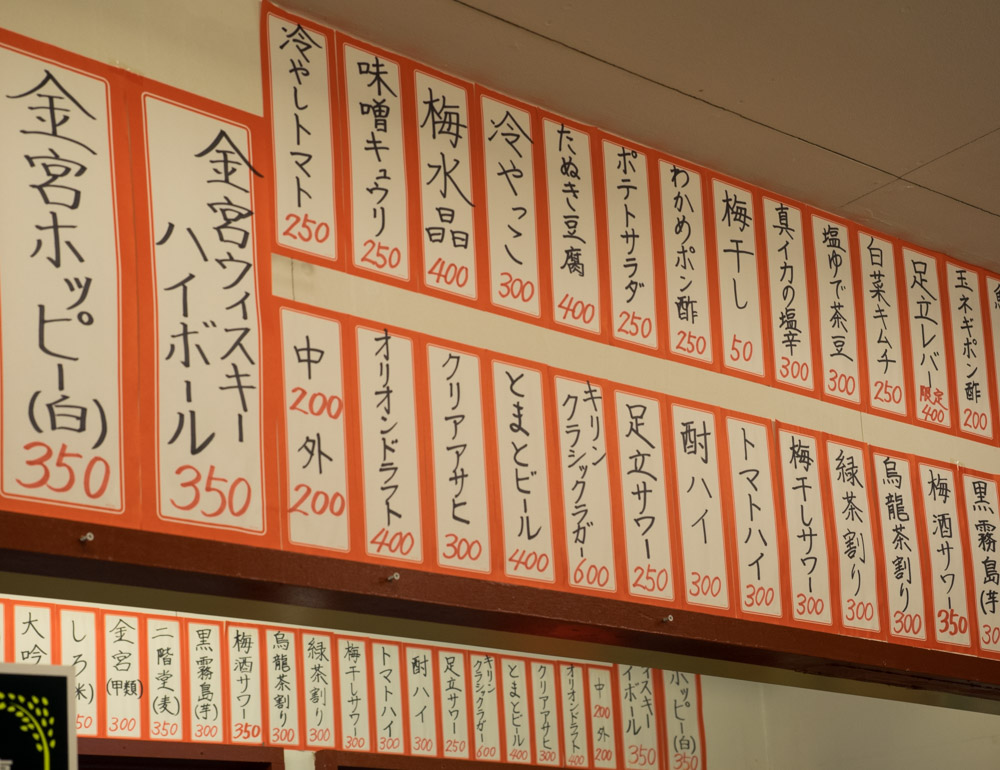 金宮ホッピー(白)
350
金宮ウィスキー
ハイボール
350
冷やしトマト
250
味噌キュウリ
250
梅水晶
400
冷やっこ
300
たぬき豆腐
400
ポテトサラダ
250
わかめポン酢
250
梅干し
50
真イカの塩辛
300
塩ゆで茶豆
300
白菜キムチ
250
足立レバー
限定
400
玉ネギポン酢
200
中
200
外
200
オリオンドラフト
400
クリアアサヒ
300
とまとビール
400
キリン
クラシックラガー
600
足立サワー
250
酎ハイ
300
トマトハイ
300
梅干しサワー
300
緑茶割り
300
烏龍茶割り
300
梅酒サワー
350
黒霧島(芋)
30
大吟
しろ(米)
50
金宮
(甲類)
300
二階堂(麦)
350
黒霧島(芋)
300
梅酒サワー
350
烏龍茶割り
300
緑茶割り
300
梅干しサワー
300
トマトハイ
300
酎ハイ
300
足立サワー
250
キリン
クラシックラガー
600
とまとビール
400
クリアアサヒ
300
オリオンドラフト
400
中
200
外
200
ィスキー
イボール
350
ホッピー(白)
350